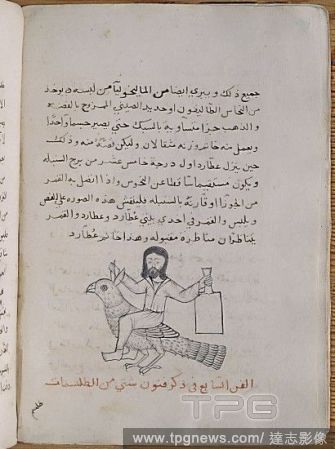 جميع ذلك ويبري ايضا من الماليخوليا من لبسه ويوخذ
من النحاس الطاليقون او حديد الصيني الممزوج بالفضه
والذهب جزا متساويه بالسبك حتى يصير جسما واحدا
ويعمل منه خاتم وزنه مثقالان وليكن فصه منه وذلك
حين ينزل عطارد اول درجة خامس عشر من برج السنبله
ويكون مستقيما ساقطا عن النحوس واذا اتصل به القمر
من الجوزا او قارنه بالسنبله فلينقش هذه الصوره على الفص
ويلبس والقمر في احدى بيتي عطارد وعطارد والقمر
يتناظران مناظرة مقبوله وهذا خاتم عطارد
الفن السابع في ذكر فنون شتى من الطلسمات
TPG
www.tpgnews.com/ 達志影像